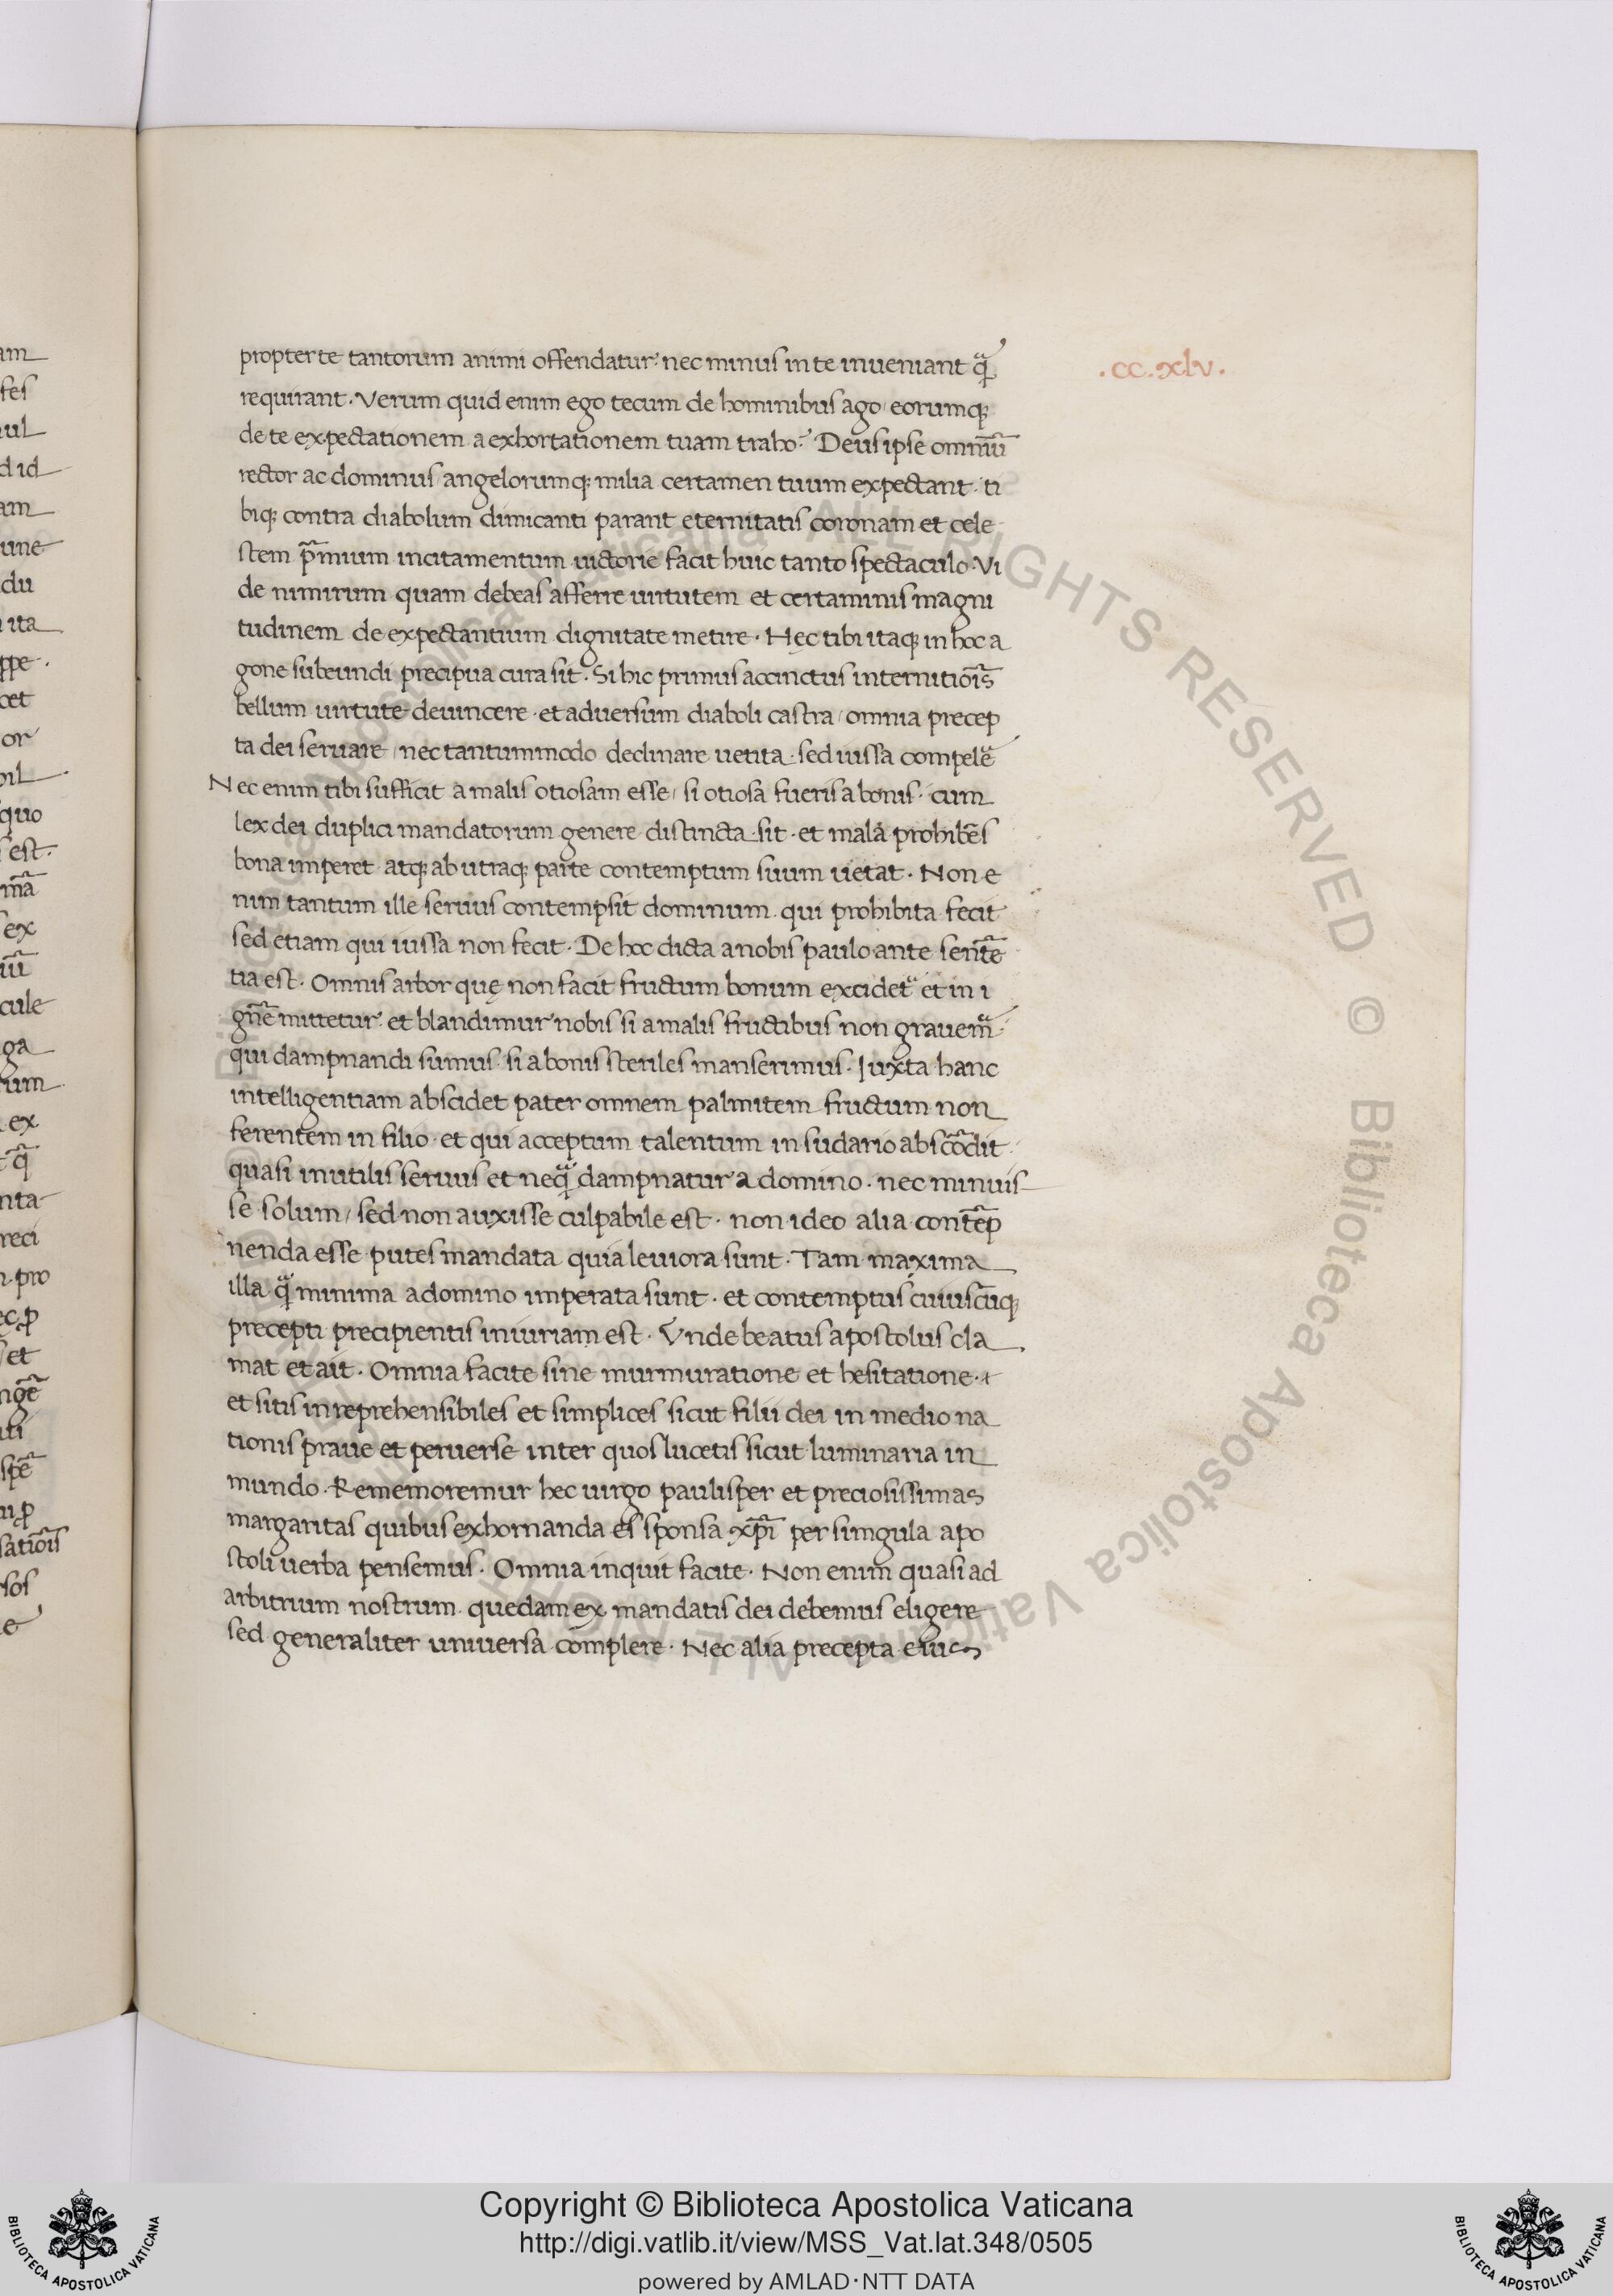 .cc.xlv.
propter te tantorum animi offendatur: nec minus in te inueniant q̃
requirant. Verum quid enim ego tecum de hominibus ago / eorumq;
de te expectationem a exhortationem tuam traho? Deus ipse omniũ
rector ac dominus / angelorumq; milia certamen tuum expectant. ti
biq; contra diabolum dimicanti parant eternitatis coronam et cele
stem p̃mium incitamentum uictorie facit huic tanto spectaculo. Vi
de nimirum quam debeas afferre uirtutem et certaminis magni
tudinem de expectantium dignitate metire. Hęc tibi itaq; in hoc a
gone subeundi precipua cura sit. Si hic primus accinctus internitiõis
bellum uirtute deuincere. et aduersum diaboli castra / omnia precep
ta dei seruare / nec tantummodo declinare uetita. sed iussa compelẽ
Nec enim tibi sufficit a malis otiosam esse / si otiosa fueris a bonis. cum
lex dei duplici mandatorum genere distincta sit. et mala prohibẽs
bona imperet. atq; ab utraq; parte contemptum suum uetat. Non e
nim tantum ille seruus contempsit dominum. qui prohibita fecit
sed etiam qui iussa non fecit. De hoc dicta a nobis paulo ante sentẽ
tia est. Omnis arbor quę non facit fructum bonum excidet᷑ et in i
gnẽ mittetur. et blandimur nobis si a malis fructibus non grauem᷑.
qui dampnandi sumus. si a bonis steriles manserimus. Iuxta hanc
intelligentiam abscidet pater omnem palmitem fructum non
ferentem in filio. et qui acceptum talentum in sudario abscõdit.
quasi inutilis seruus et neq̃ dampnatur a domino. nec minuis
se solum / sed non auxisse culpabile est. non ideo alia contẽp
nenda esse putes mandata quia leuiora sunt. Tam maxima
illa q̃ minima a domino imperata sunt. et contemptus cuiuscũq;
precepti precipientis iniuriam est. Vnde beatus apostolus cla
mat et ait. Omnia facite sine murmuratione et hesitatione.
et sitis inreprehensibiles et simplices sicut filii dei in medio na
tionis praue et peruerse inter quos lucetis sicut luminaria in
mundo. Rememoremur hec uirgo paulisper et preciosissimas
margaritas quibus exhornanda es sponsa xp̃i per singula apo
stoli uerba pensemus. Omnia inquit facite. Non enim quasi ad
arbitrium nostrum quedam ex mandatis dei debemus eligere
sed generaliter uniuersa complere. Nec alia precepta eius
© Biblioteca Apostolica Vaticana ALL RIGHTS RESERVED © Biblioteca Apostolica Vaticana
Copyright © Biblioteca Apostolica Vaticana
http://digi.vatlib.it/view/MSS_Vat.lat.348/0505
powered by AMLAD·NTT DATA
BIBLIOTECA APOSTOLICA VATICANA
BIBLIOTECA APOSTOLICA VATICANA